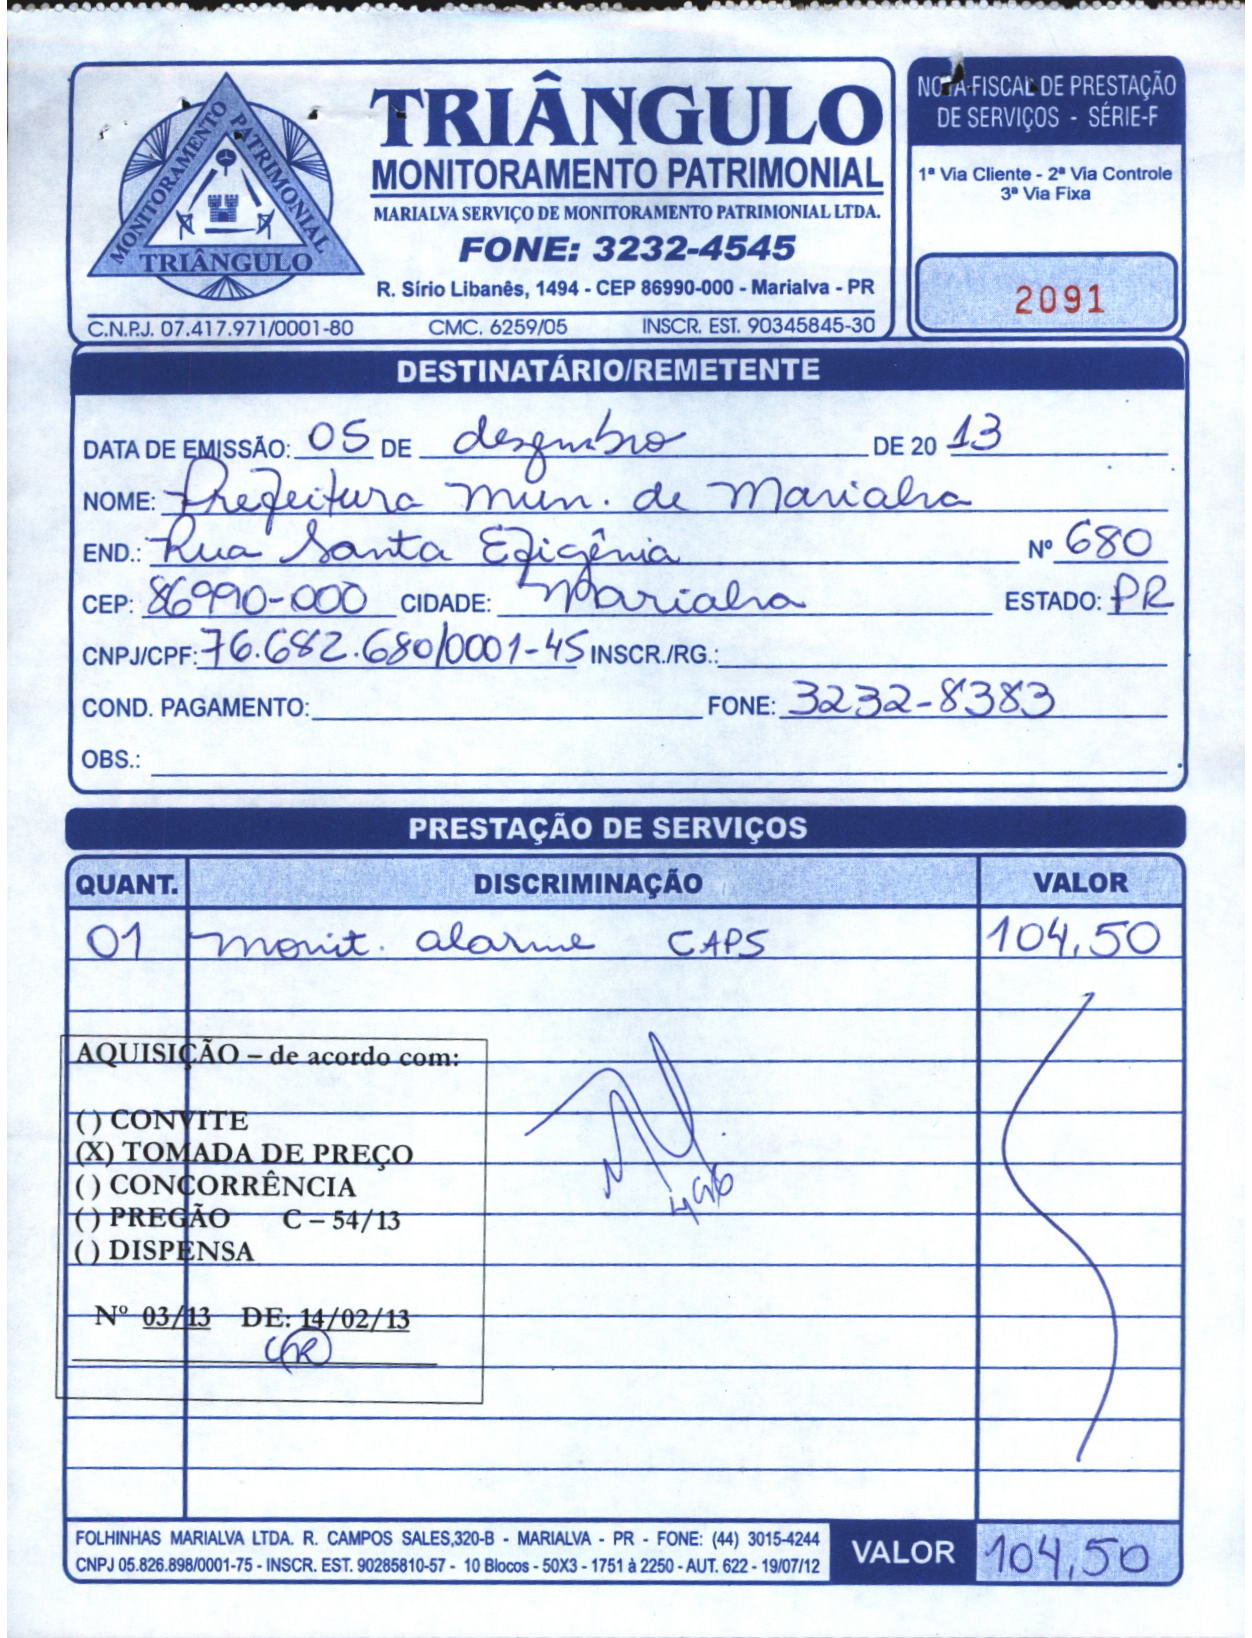 MONITORAMENTO PATRIMONIAL
TRIÂNGULO
TRIÂNGULO
MONITORAMENTO PATRIMONIAL
MARIALVA SERVIÇO DE MONITORAMENTO PATRIMONIAL LTDA.
FONE: 3232-4545
R. Sírio Libanês, 1494 - CEP 86990-000 - Marialva - PR
C.N.P.J. 07.417.971/0001-80 CMC. 6259/05 INSCR. EST. 90345845-30
NOTA-FISCAL DE PRESTAÇÃO
DE SERVIÇOS - SÉRIE-F
1ª Via Cliente - 2ª Via Controle
3ª Via Fixa
2091
DESTINATÁRIO/REMETENTE
DATA DE EMISSÃO: 05 DE dezembro DE 20 13
NOME: Prefeitura Mun. de Marialva
END.: Rua Santa Efigênia Nº 680
CEP: 86990-000 CIDADE: Marialva ESTADO: PR
CNPJ/CPF: 76.682.680/0001-45 INSCR./RG.:
COND. PAGAMENTO: FONE: 3232-8383
OBS.:
PRESTAÇÃO DE SERVIÇOS
QUANT. DISCRIMINAÇÃO VALOR
01 monit. alarme CAPS 104,50
AQUISIÇÃO – de acordo com:
( ) CONVITE
(X) TOMADA DE PREÇO
( ) CONCORRÊNCIA
( ) PREGÃO C – 54/13
( ) DISPENSA
Nº 03/13 DE: 14/02/13
FOLHINHAS MARIALVA LTDA. R. CAMPOS SALES,320-B - MARIALVA - PR - FONE: (44) 3015-4244
CNPJ 05.826.898/0001-75 - INSCR. EST. 90285810-57 - 10 Blocos - 50X3 - 1751 à 2250 - AUT. 622 - 19/07/12
VALOR 104,50